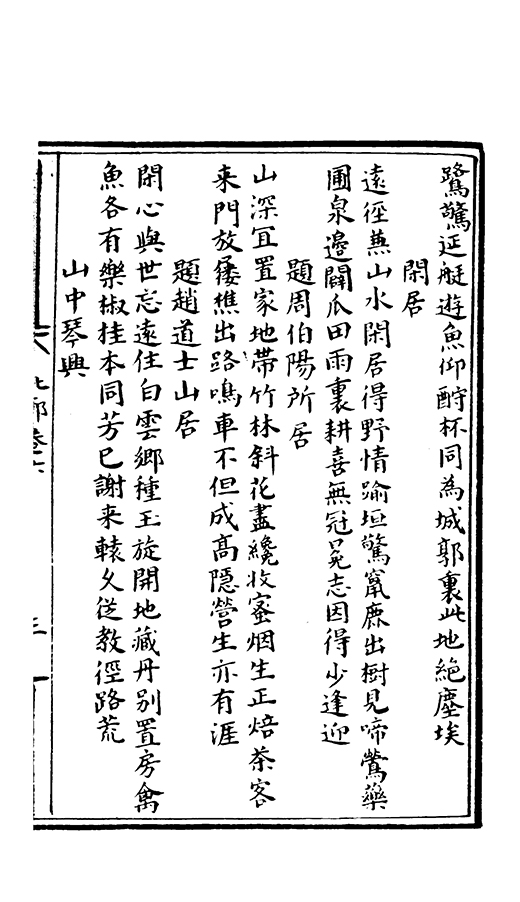 鷺驚延艇遊魚仰酹杯同為城郭裏此地絶塵埃
閑居
遠徑兼山水閑居得野情踰垣驚竄麃出樹見啼鶯藥
圃泉邊闢瓜田雨裏耕喜無冠冕志因得少逢迎
題周伯陽所居
山深冝置家地帶竹林斜花盡纔收蜜烟生正焙茶客
来門放屨樵出路鳴車不但成髙隱營生亦有涯
題趙道士山居
閑心與世忘遠住白雲鄉種玉旋開地藏丹别置房禽
魚各有樂椒桂本同芳已謝来轅久從教徑路荒
山中琴興